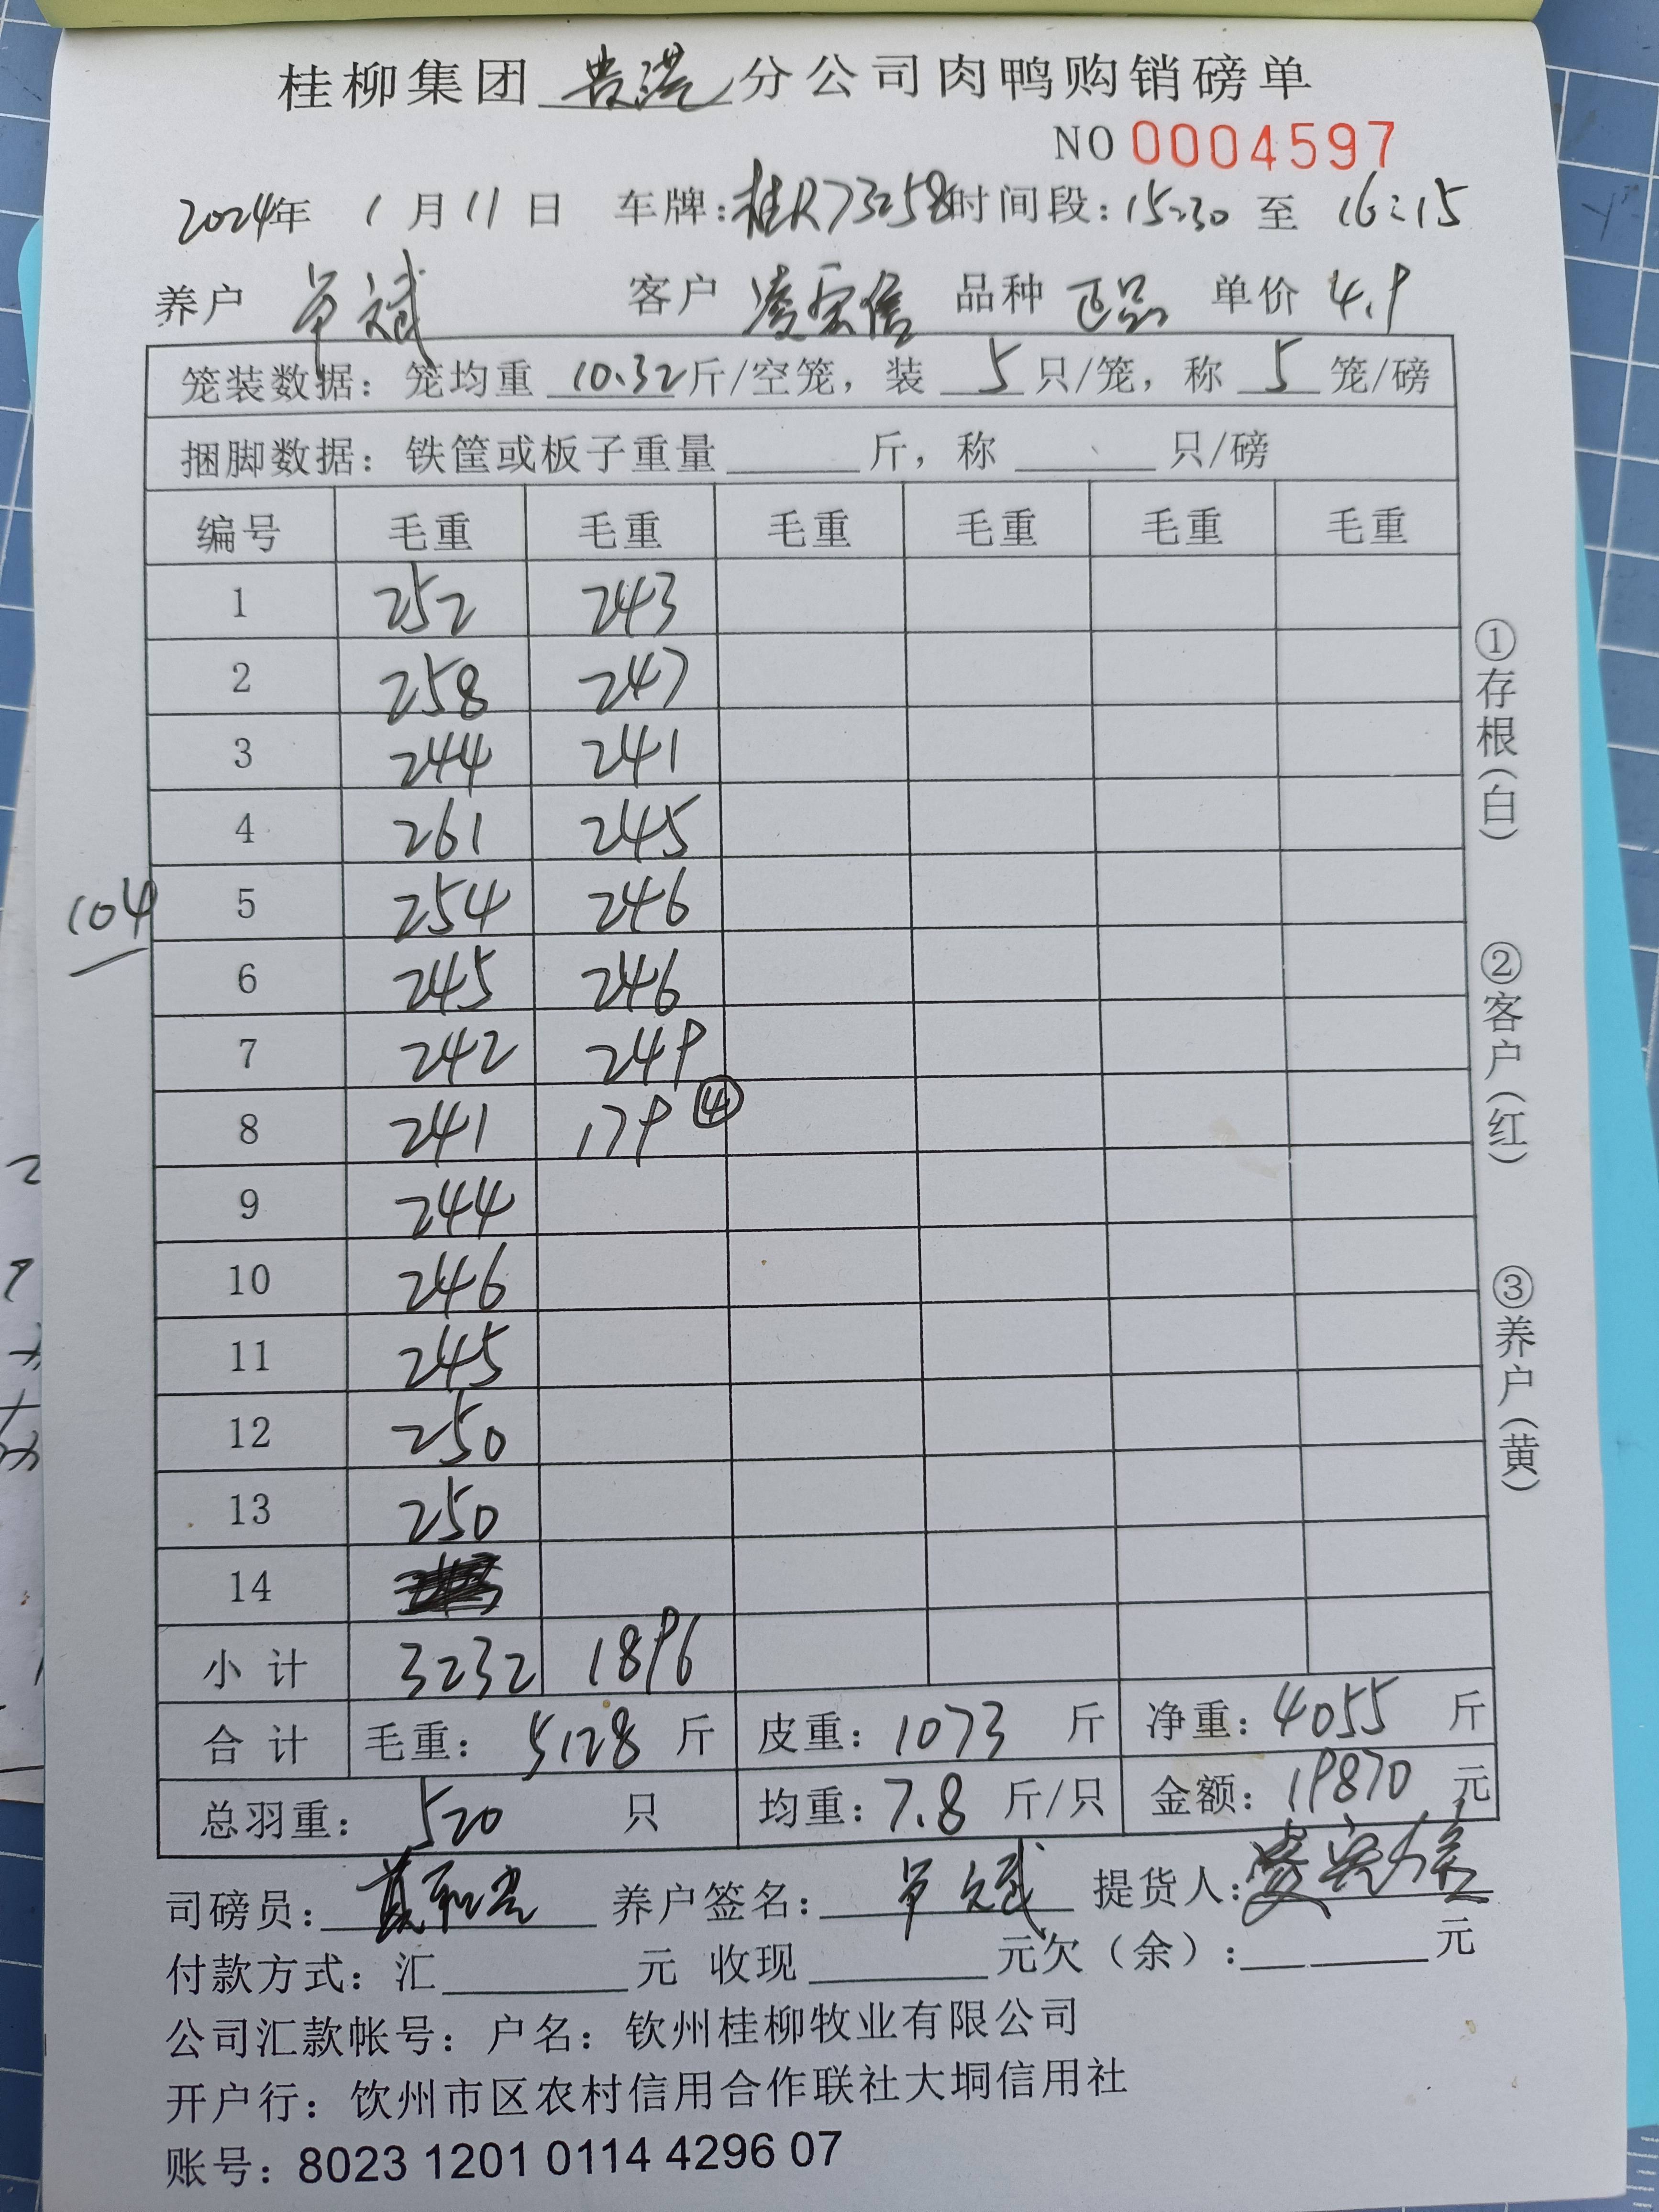 桂柳集团 贵港 分公司肉鸭购销磅单
NO 0004597
2024年 1月11日 车牌:桂R73258 时间段:15:30 至 16:15
养户 单斌 客户 凌宗信 品种 正品 单价 4.9
笼装数据：笼均重 10.32 斤/空笼，装 5 只/笼，称 5 笼/磅
捆脚数据：铁筐或板子重量 斤，称 只/磅
编号 毛重 毛重 毛重 毛重 毛重 毛重
1 252 243
2 258 247
3 244 241
4 261 245
104
5 254 246
6 245 246
7 242 249
8 241 179 ④
9 244
10 246
11 245
12 250
13 250
14
小计 3232 1896
合计 毛重：5128 斤 皮重：1073 斤 净重：4055 斤
总羽重：520 只 均重：7.8 斤/只 金额：19870 元
司磅员: 养户签名: 单斌 提货人: 凌宗信
付款方式：汇 元 收现 元欠（余）: 元
公司汇款帐号：户名：钦州桂柳牧业有限公司
开户行：钦州市区农村信用合作联社大垌信用社
账号：8023 1201 0114 4296 07
①存根(白)
②客户(红)
③养户(黄)